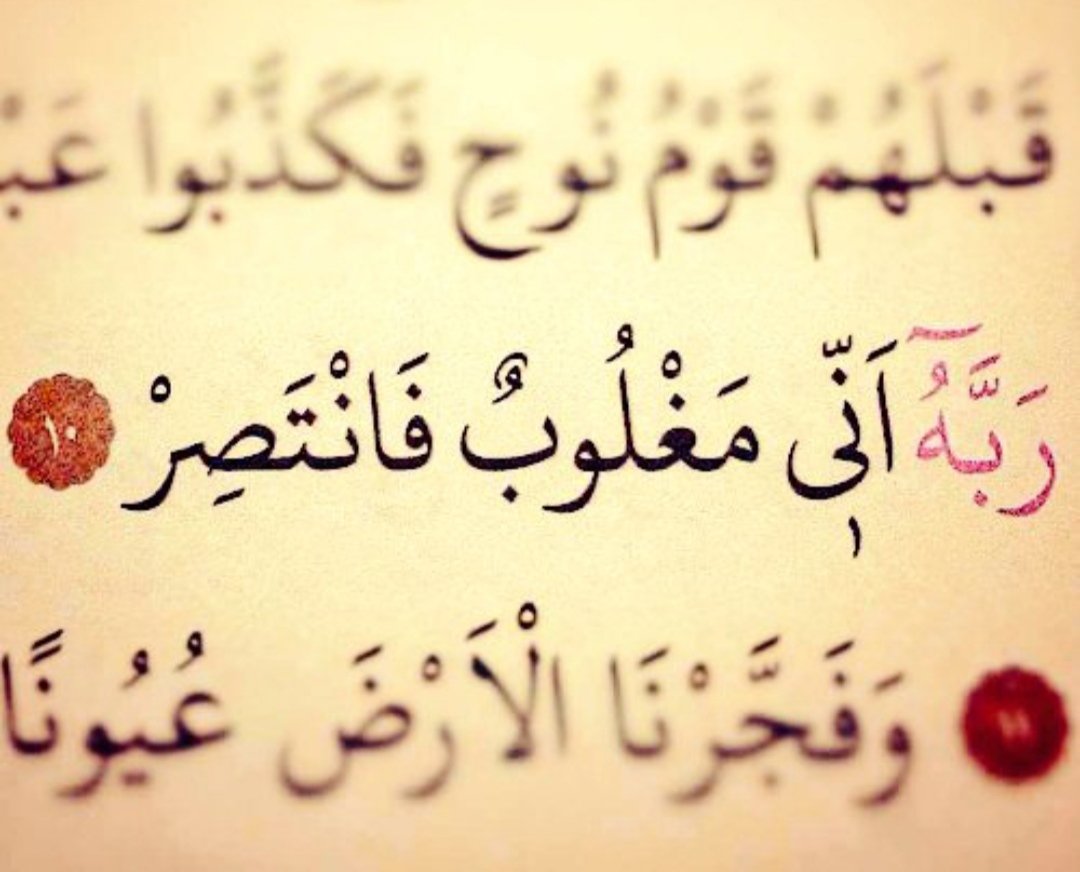 قَبْلَهُمْ قَوْمُ نُوحٍ فَكَذَّبُوا
رَبَّهُٓ اَنّ۪ي مَغْلُوبٌ فَانْتَصِرْ ١٠
١١ وَفَجَّرْنَا الْاَرْضَ عُيُونًا